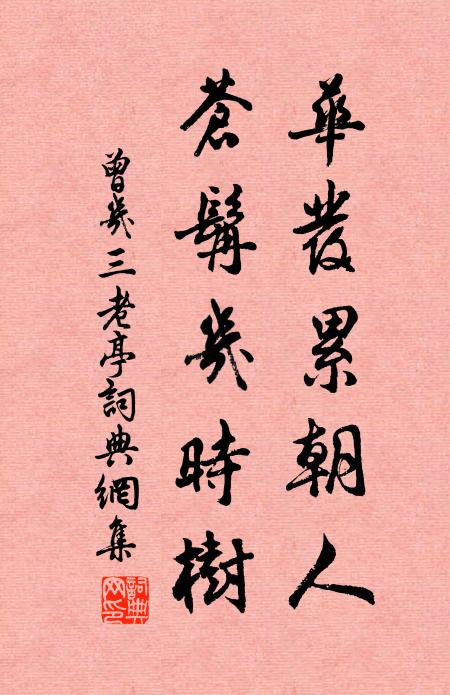 華發累朝人
蒼髯幾時樹
曾幾三老亭詞典網集
詞典網印